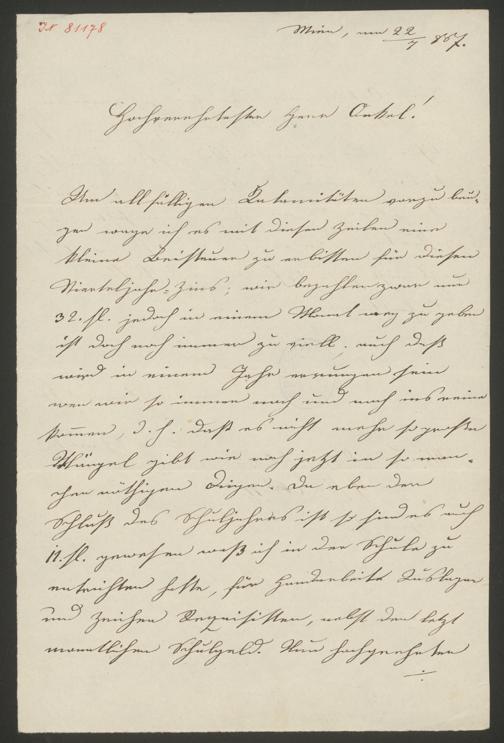 IN 81178
Wien, am 22/7 867.
Hochverehrtester Herr Onkel!
Um allfälligen Calamitäten vorzubeu-
gen wage ich es mit diesen Zeilen eine
kleine Beisteuer zu erbitten für diesen
Vierteljahr-Zins; wir bezahlen zwar nur
32. fl. jedoch in einem Monat weg zu geben
ist doch noch immer zu viell. auch daß
wird in einem Jahr errungen sein
wen wir so immer nach und nach ins reine
kommen, d. h. daß es nicht mehr so große
Mängel gibt wie noch jetzt in so man-
chen nöthigen Dingen. Da eben der
Schluß des Schuljahres ist so sind es auch
11. fl. gewesen waß ich in der Schule zu
entrichten hatte, für Handarbeits Auslagen
und Zeichen Requisitten, nebst den letzt
monatlichen Schulgeld. Nun hochgeehrter